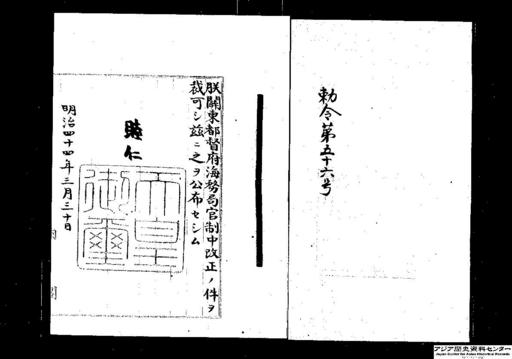 勅令第五十六号
朕關東都督府海務局官制中改正ノ件ヲ
裁可シ玆ニ之ヲ公布セシム
睦仁
天皇御璽
明治四十四年三月三十日
内閣
アジア歴史資料センター
Japan Center for Asian Historical Records